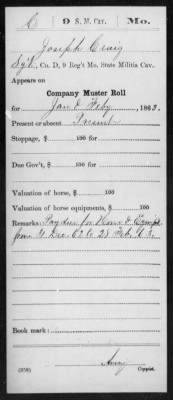 C 9 S. M. Cav. Mo.
Joseph Craig
Sgt., Co. D, 9 Reg't Mo. State Militia Cav.
Appears on
Company Muster Roll
for Jan & Feby, 1863.
Present or absent Present
Stoppage, $ 100 for
Due Gov't, $ 100 for
Valuation of horse, $ 100
Valuation of horse equipments, $ 100
Remarks: Pay due for Horse & Equip
from 31 Dec 62 to 28 Feb, 63.
Book mark:
(358) Copyist.